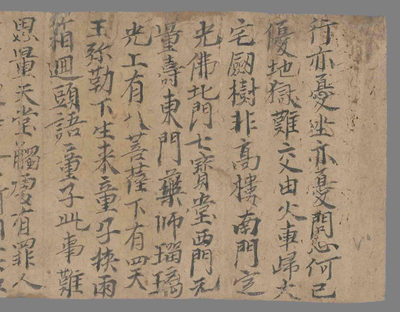 行亦憂坐亦憂問怨何已
優地獄難交由火車歸火
宅劔樹非高樓南門定
光佛北門七寶堂西門无
量壽東門藥師瑠璃
光上有八菩薩下有四天
王弥勒下生来童子挾兩
箱迴頭語童子此事難
思量天堂觸處有罪人